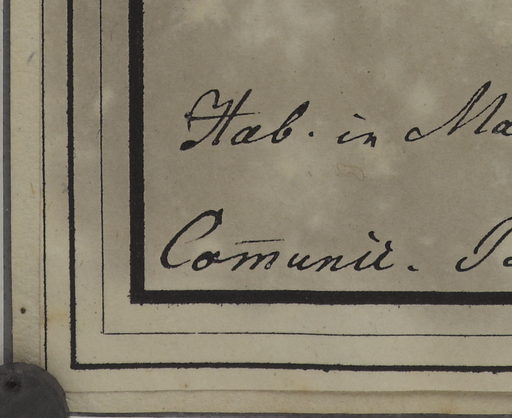 Hab. in Ma
Com̅unic.